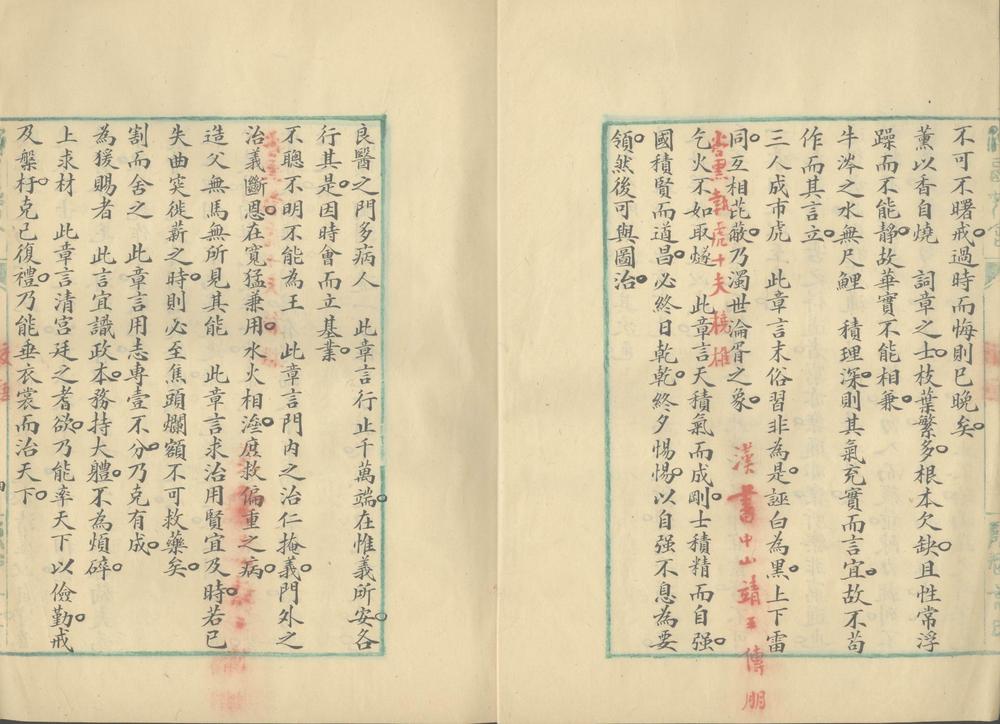 不可不曙戒。過時而悔則已晚矣。
薰以香自燒　詞章之士。枝葉繁多。根本欠缺。且性常浮
躁而不能靜。故華實不能相兼。
牛涔之水無尺鯉　積理深則其氣充實而言宜。故不苟
作而其言立。
三人成市虎　此章言末俗習非為是。誣白為黑。上下雷
同。互相菧蔽。乃濁世淪胥之象。
乞火不如取燧　此章言天積氣而成剛。士積精而自强。
國積賢而道昌。必終日乾乾。終夕惕惕。以自强不息為要
領。然後可與圖治。
十夫橈椎
漢書中山靖王傳 朋
良醫之門多病人　此章言行止千萬端。在惟義所安。各
行其是。因時會而立基業。
不聰不明不能為王　此章言門內之治仁掩義。門外之
治義斷恩。在寬猛兼用。水火相濟。庶救偏重之病。
造父無馬無所見其能　此章言求治用賢宜及時。若已
失曲突徙薪之時。則必至焦頭爛額不可救藥矣。
割而舍之　此章言用志專壹不分。乃克有成。
為猨賜者　此言宜識政本。務持大體。不為煩碎。
上求材　此章言清宮廷之耆欲。乃能率天下以儉勤。戒
及槃杅。克己復禮。乃能垂衣裳而治天下。